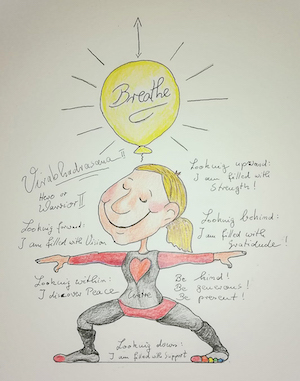 Breathe
Virabhadrasana II
Hero or
Warrior II
Looking upward:
I am filled with
Strength!
Looking forward:
I am filled with Vision
Looking behind:
I am filled with
Gratitude!
Looking within:
I discover Peace
Centre
Be kind!
Be generous!
Be present!
Looking down:
I am filled with Support